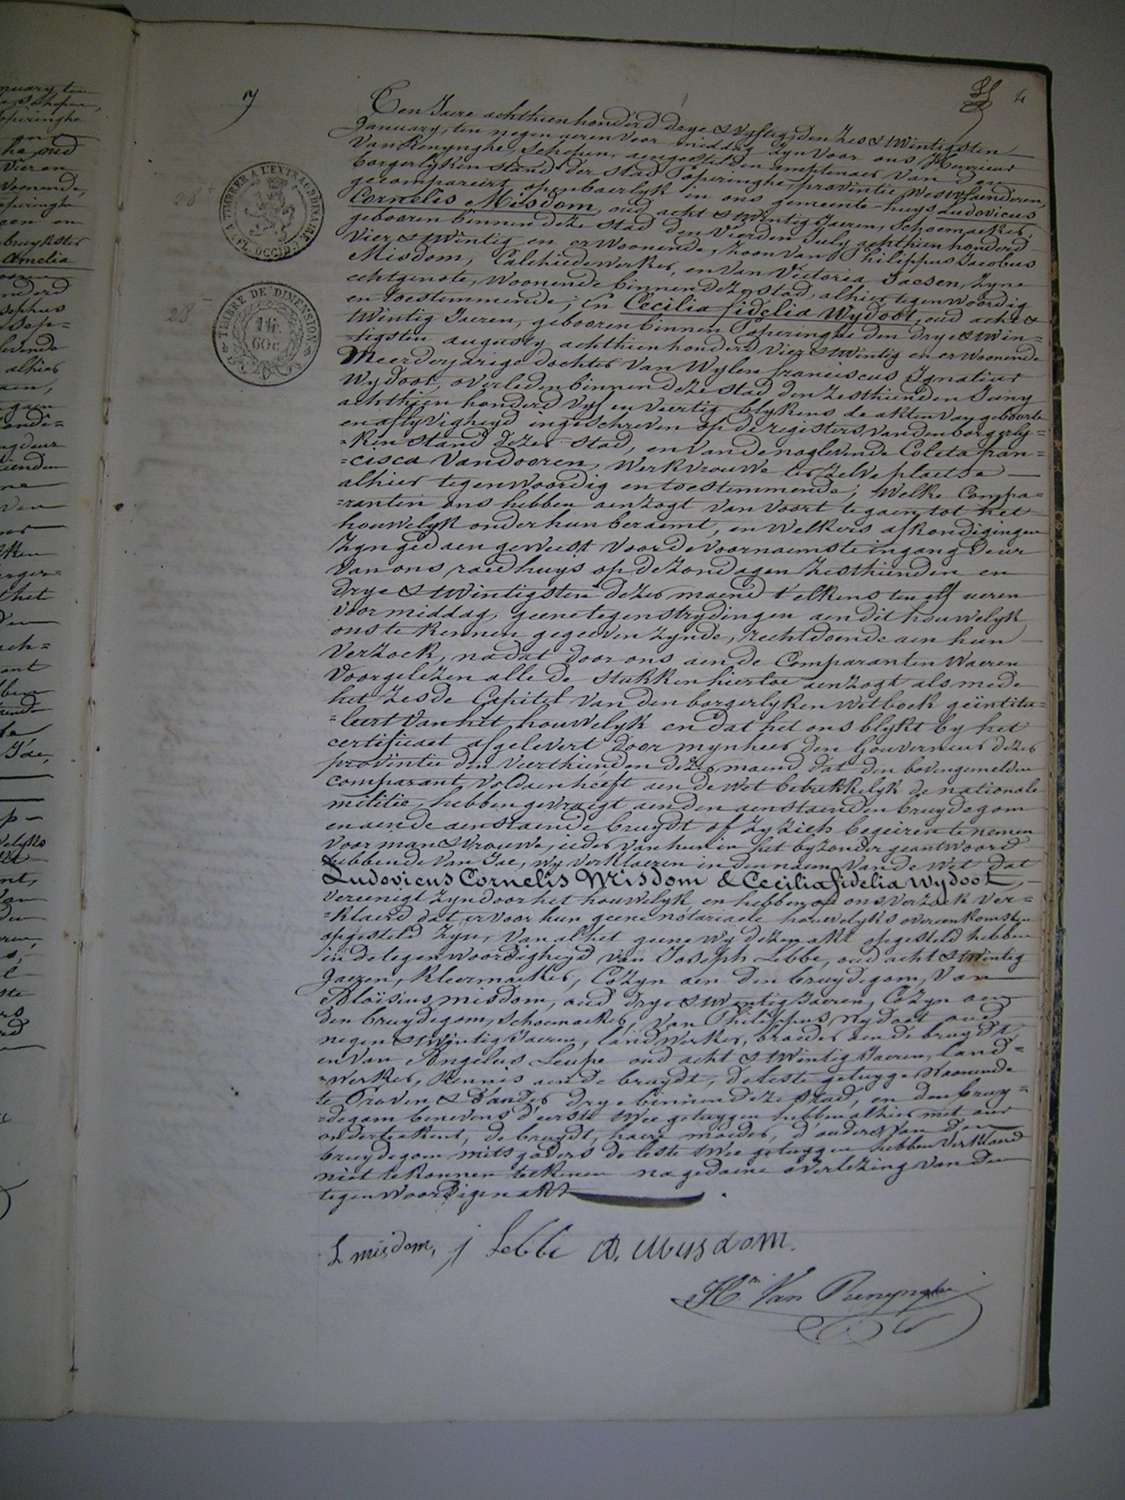 7
4
Ten Jaere achthien honderd drye & vyftig, den zes & twintigsten
January, ten negen ueren voor middag, zyn voor ons Henricus
Van Renynghe, Schepen, aengestelden amptenaer van den
borgerlyken stand der stad Poperinghe, provintie Westvlaenderen,
gecompareert openbaerlyk in ons gemeente-huys Ludovicus
Cornelis Misdom, oud acht & twintig Jaeren, Schoemaeker,
gebooren binnen deze stad den vierden July achthien honderd
vier & twintig en er woonende, zoon van Philippus Jacobus
Misdom, Calchiedewerker, en van Victoria Jaesen, zyne
echtgenote, woonende binnen deze stad, alhier tegenwoordig
en toestemmende; En Cecilia fidelia Wydoot, oud acht &
twintig Jaeren, gebooren binnen Poperinghe den drye & twin=
=tigsten augusty achthien honderd vier & twintig en er woonende
Meerderjarige dochter van wylen franciscus Ignatius
Wydoot, overleden binnen deze stad den zesthienden Juny
achthien honderd vyf en veertig blykens de akten van geboorte
en aflyvigheyd ingeschreven op de registers van den borgerly=
=ken stand dezer stad, en van de naglevende Coleta fran=
=cisca Vandooren, werkvrouwe ter zelve plaetse
alhier tegenwoordig en toestemmende; welke Compa=
=ranten ons hebben aenzogt van voort te gaen tot het
houwelyk onder hun beraemt, en welkers afkondigingen
zyn gedaen geweest voor de voornaemste ingang deur
van ons raedhuys op de zondagen zesthienden en
drye & twintigsten dezer maend t'elkens ten elf ueren
voormiddag, geene tegenstrydingen aen dit houwelyk
ons te kennen gegeeven zynde, rechtdoende aen hun
verzoek, na dat door ons aen de Comparanten waeren
voorgelezen alle de stukken hiertoe aenzogt als mede
het zesde Capitel van den borgerlyken wetboek geïntitu=
=leert van het houwelyk en dat het ons blykt by het
certificaet afgelevert door mynheer den Gouverneur dezer
provintie den veerthienden dezer maend dat den bovengemelden
comparant voldaen heeft aen de wet betrekkelyk de nationale
militie, hebben gevraegt aen den aenstaenden bruydegom
en aen de aenstaende bruydt of zy zich begeiren te nemen
voor man & vrouwe, ieder van hun in het byzonder geantwoord
hebbende van Jae, wy verklaeren in den naem van de wet dat
Ludovicus Cornelis Misdom & Cecilia fidelia Wydoot,
vereenigt zyn door het houwelyk, en hebben op ons verzoek ver=
=klaerd dat er voor hun geene notariaele houwelyks overeenkomsten
opgesteld zyn, van al het geene wy dezen akt opgesteld hebben
in de tegenwoordigheyd van Joseph Lebbe, oud acht & twintig
Jaeren, kleermaeker, Cozyn aen den bruydegom, van
Aloïsius misdom, oud drye & twentig Jaeren, Cozyn aen
den bruydegom, schoemaeker, van Philippus Wydoot oud
negen & twintig Jaeren, landwerker, broeder aen de bruydt,
en van Angelus Leupe oud acht & twintig Jaeren, land=
=werker, kennis aen de bruydt, de leste getuyge woonende
te Proven & d'ander drye binnen deze stad, en den bruy=
=degom benevens d'eerste twee getuygen hebben alhier met ons
onderteekent, de bruydt, haere moeder, d'ouders van den
bruydegom mitsgaders de leste twee getuygen hebben verklaerd
niet te konnen teekenen na gedaene overlezing van den
tegenwoordigen akt.
TIMBRER A L'EXTRAORDINAIRE
FL. OCCID.
TIMBRE DE DIMENSION
L misdom, j Lebbe A. Musdom.
Hri Van Renynghe